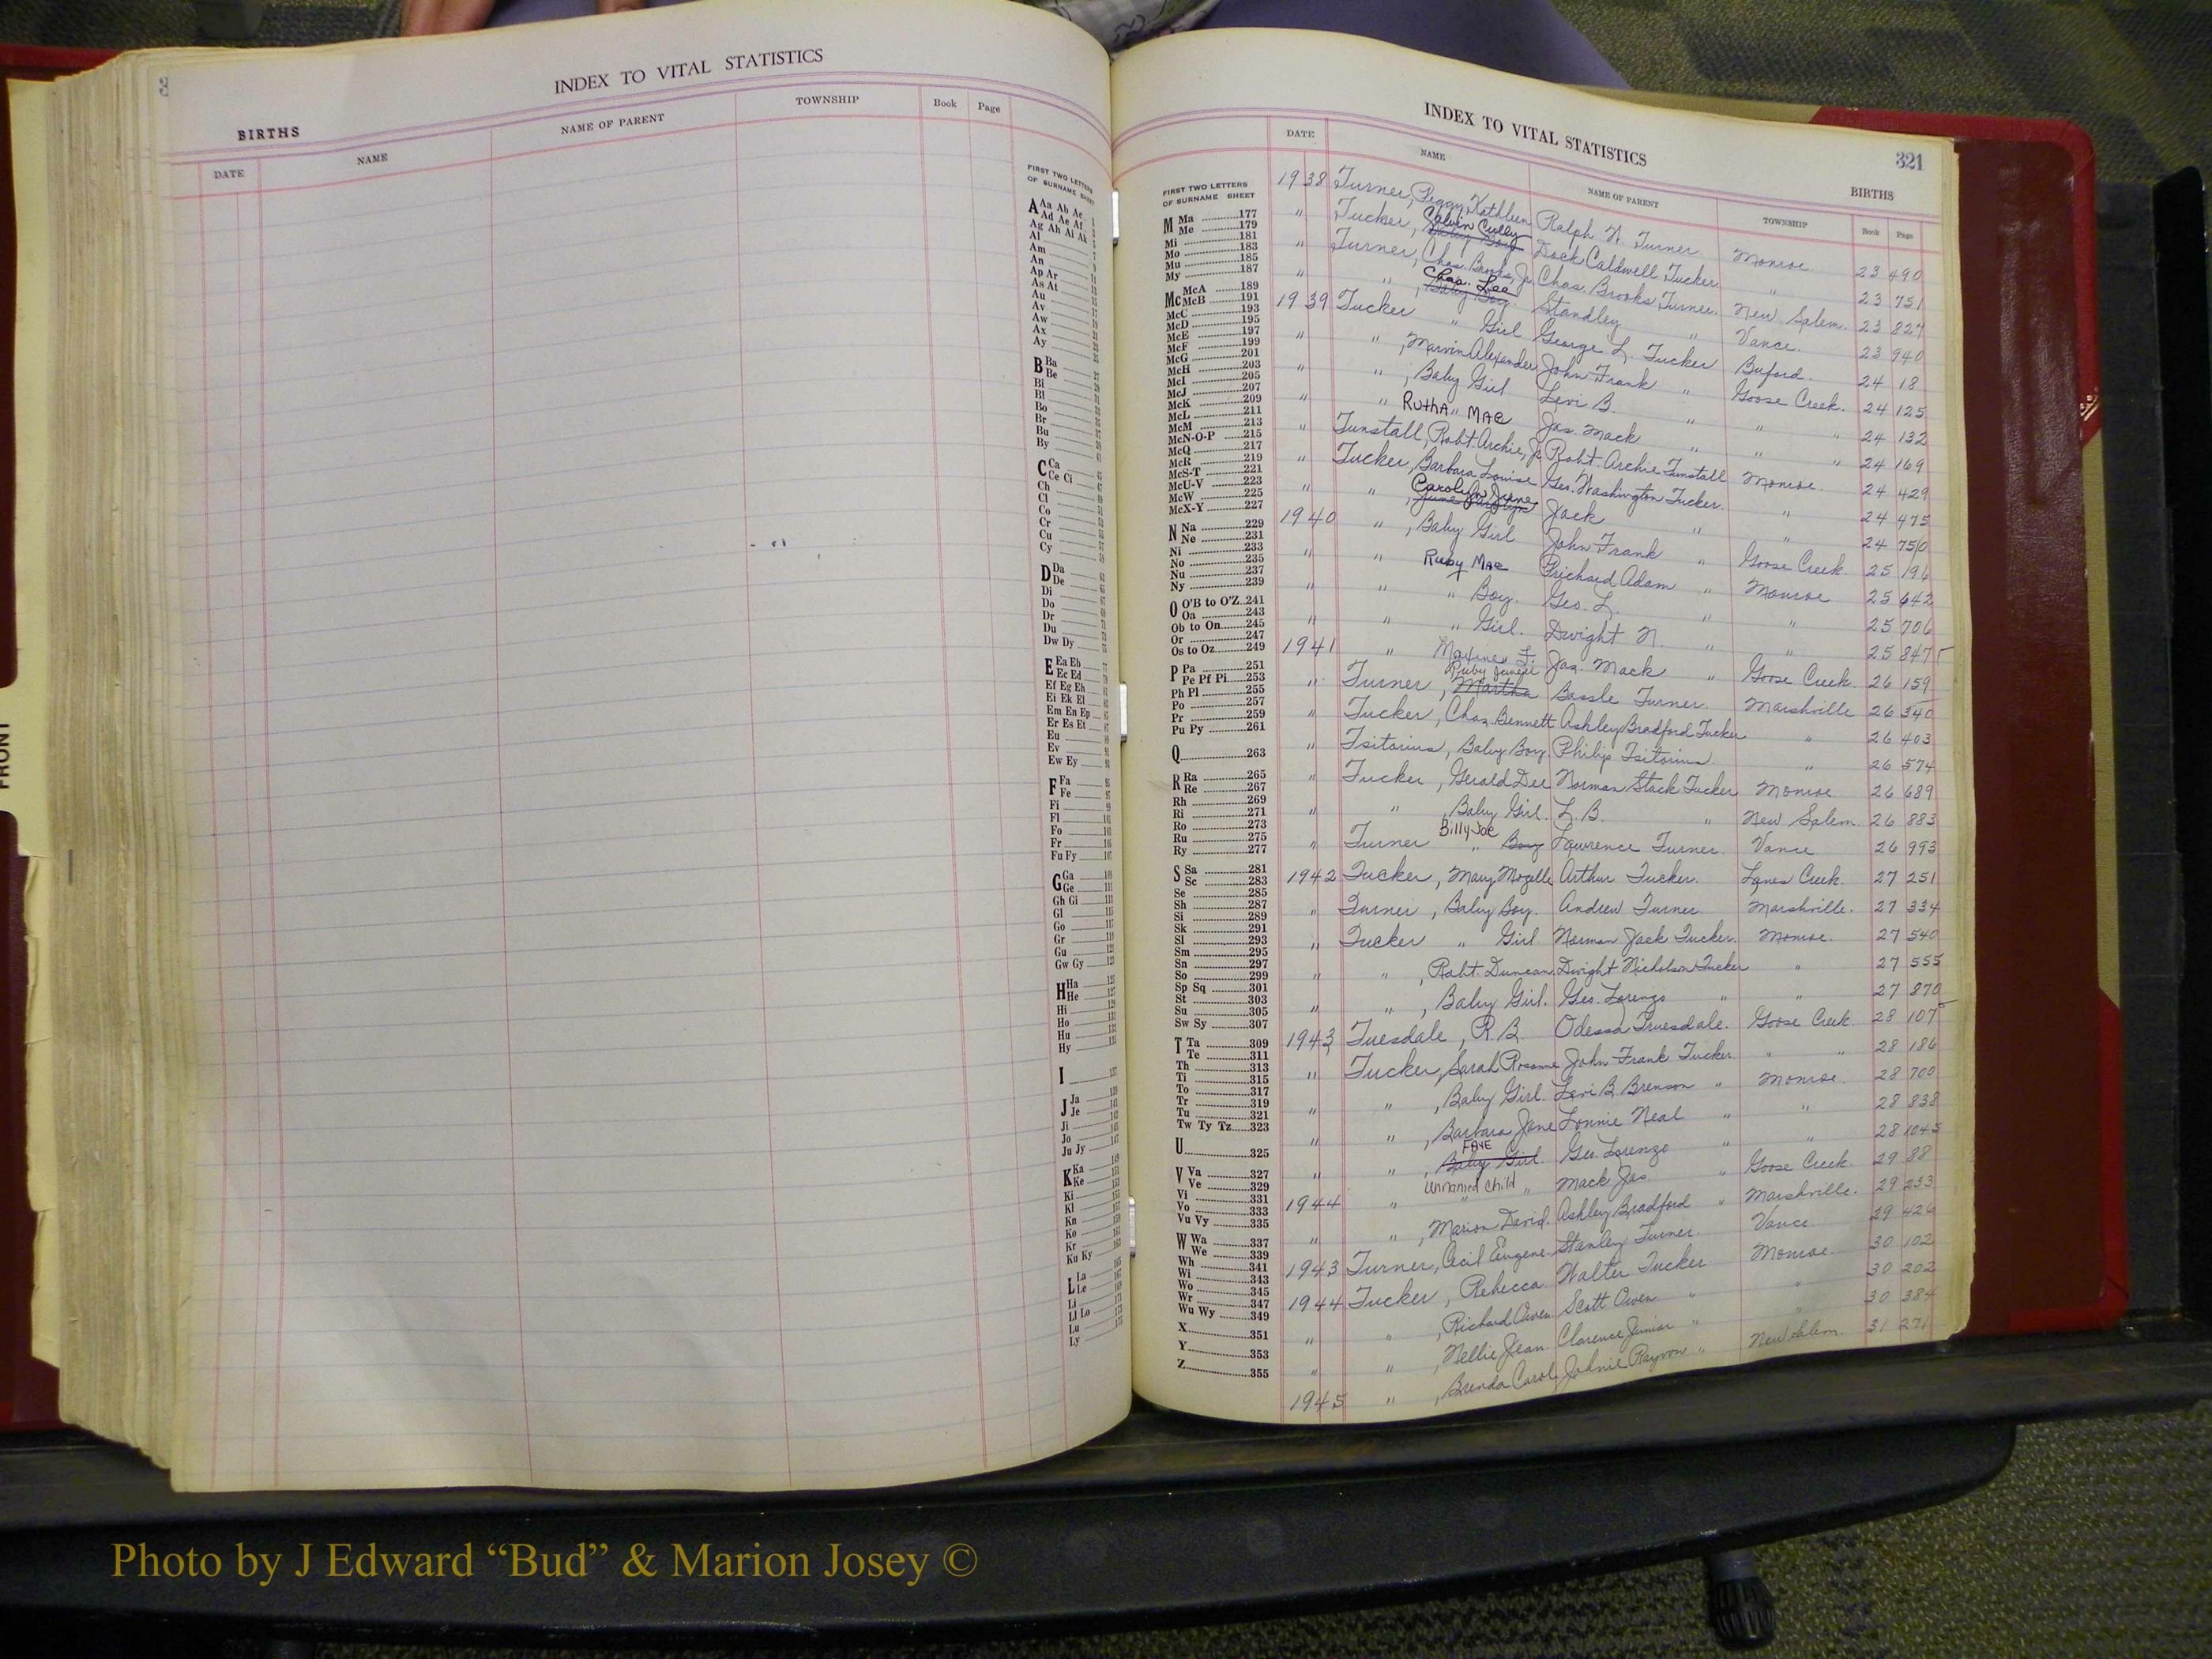 3
INDEX TO VITAL STATISTICS
BIRTHS
DATE NAME NAME OF PARENT TOWNSHIP Book Page
FIRST TWO LETTERS
OF SURNAME SHEET
A Aa Ab Ac
Ad Ae Af
Ag Ah Ai Ak
Al
Am
An
Ap Ar
As At
Au
Av
Aw
Ax
Ay
B Ba
Be
Bi
Bl
Bo
Br
Bu
By
C Ca
Ce Ci
Ch
Cl
Co
Cr
Cu
Cy
D Da
De
Di
Do
Dr
Du
Dw Dy
E Ea Eb
Ec Ed
Ef Eg Eh
Ei Ek El
Em En Ep
Er Es Et
Eu
Ev
Ew Ey
F Fa
Fe
Fi
Fl
Fo
Fr
Fu Fy
G Ga
Ge
Gh Gi
Gl
Go
Gr
Gu
Gw Gy
H Ha
He
Hi
Ho
Hu
Hy
I
J Ja
Je
Ji
Jo
Ju Jy
K Ka
Ke
Ki
Kl
Kn
Ko
Kr
Ku Ky
L La
Le
Li
Ll Lo
Lu
Ly
FRONT
INDEX TO VITAL STATISTICS 321
BIRTHS
DATE NAME NAME OF PARENT TOWNSHIP Book Page
FIRST TWO LETTERS
OF SURNAME SHEET
M Ma 177
Me 179
Mi 181
Mo 183
Mu 185
My 187
Mc McA 189
McB 191
McC 193
McD 195
McE 197
McF 199
McG 201
McH 203
McI 205
McJ 207
McK 209
McL 211
McM 213
McN-O-P 215
McQ 217
McR 219
McS-T 221
McU-V 223
McW 225
McX-Y 227
N Na 229
Ne 231
Ni 233
No 235
Nu 237
Ny 239
O O'B to O'Z 241
Oa 243
Ob to On 245
Or 247
Os to Oz 249
P Pa 251
Pe Pf Pi 253
Ph Pl 255
Po 257
Pr 259
Pu Py 261
Q 263
R Ra 265
Re 267
Rh 269
Ri 271
Ro 273
Ru 275
Ry 277
S Sa 281
Sc 283
Se 285
Sh 287
Si 289
Sk 291
Sl 293
Sm 295
Sn 297
So 299
Sp Sq 301
St 303
Su 305
Sw Sy 307
T Ta 309
Te 311
Th 313
Ti 315
To 317
Tr 319
Tu 321
Tw Ty Tz 323
U 325
V Va 327
Ve 329
Vi 331
Vo 333
Vu Vy 335
W Wa 337
We 339
Wh 341
Wi 343
Wo 345
Wr 347
Wu Wy 349
X 351
Y 353
Z 355
1938 Turner, Peggy Kathleen Ralph W. Turner Monroe 23 490
" Tucker, Calvin Culley Baby Boy Dock Caldwell Tucker " 23 751
" Turner, Chas. Brooks, Jr. Chas. Brooks Turner. New Salem. 23 827
" " , Chas. Lee Baby Boy. Standley " Vance. 23 940
1939 Tucker " Girl George L. Tucker Buford. 24 18
" " , Marvin Alexander John Frank " Goose Creek. 24 125
" " , Baby Girl Levi B. " " " 24 132
" " RUTHA MAE Jas. Mack " " " 24 169
" Tunstall, Robt. Archie, Jr. Robt. Archie Tunstall Monroe. 24 429
" Tucker, Barbara Louise Geo. Washington Tucker. " 24 475
" " , Carolyn June June Carolyn Jack " " 24 750
1940 " , Baby Girl John Frank " Goose Creek. 25 196
" " Ruby Mae Prichard Adam " Monroe 25 642
" " " Boy. Geo. L. " " 25 706
" " " Girl. Dwight N. " " 25 847
1941 " Maxine L. Jas. Mack " Goose Creek. 26 159
" Turner, Ruby Martha Bassle Turner. Marshville 26 340
" Tucker, Chas. Bennett Ashley Bradford Tucker " 26 403
" Tsitorius, Baby Boy. Philip Tsitorius. " 26 574
" Tucker, Gerald Dee Norman Stack Tucker Monroe. 26 689
" " , Baby Girl. L. B. " New Salem. 26 883
" Turner Billy Joe " Boy Lawrence Turner. Vance 26 993
1942 Tucker, Mary Mozelle Arthur Tucker. Lanes Creek. 27 251
" Turner, Baby Boy. Andrew Turner. Marshville. 27 334
" Tucker " Girl Norman Jack Tucker. Monroe. 27 540
" " , Robt. Duncan. Dwight Nicholson Tucker " 27 555
" " , Baby Girl. Geo. Lorenzo " " 27 870
1943 Tuesdale, R. B. Odessa Truesdale. Goose Creek 28 107
" Tucker, Sarah Rosanne John Frank Tucker. " " 28 186
" " , Baby Girl. Levi B. Brenson " Monroe. 28 700
" " , Barbara Jane Lonnie Neal " " 28 838
" " , FAYE Baby Girl. Geo. Lorenzo " " 28 1045
1944 " unnamed child " Mack Jas. " Goose Creek. 29 88
" " , Marion David. Ashley Bradford " Marshville. 29 233
1943 Turner, Cecil Eugene. Stanley Turner. Vance 29 426
1944 Tucker, Rebecca Walter Tucker Monroe. 30 102
" " , Richard Owen Scott Owen " " 30 202
" " , Nellie Jean. Clarence Junior " " 30 384
1945 " , Brenda Carol Johnie Rayvon " New Salem. 31 271
Photo by J Edward “Bud” & Marion Josey ©